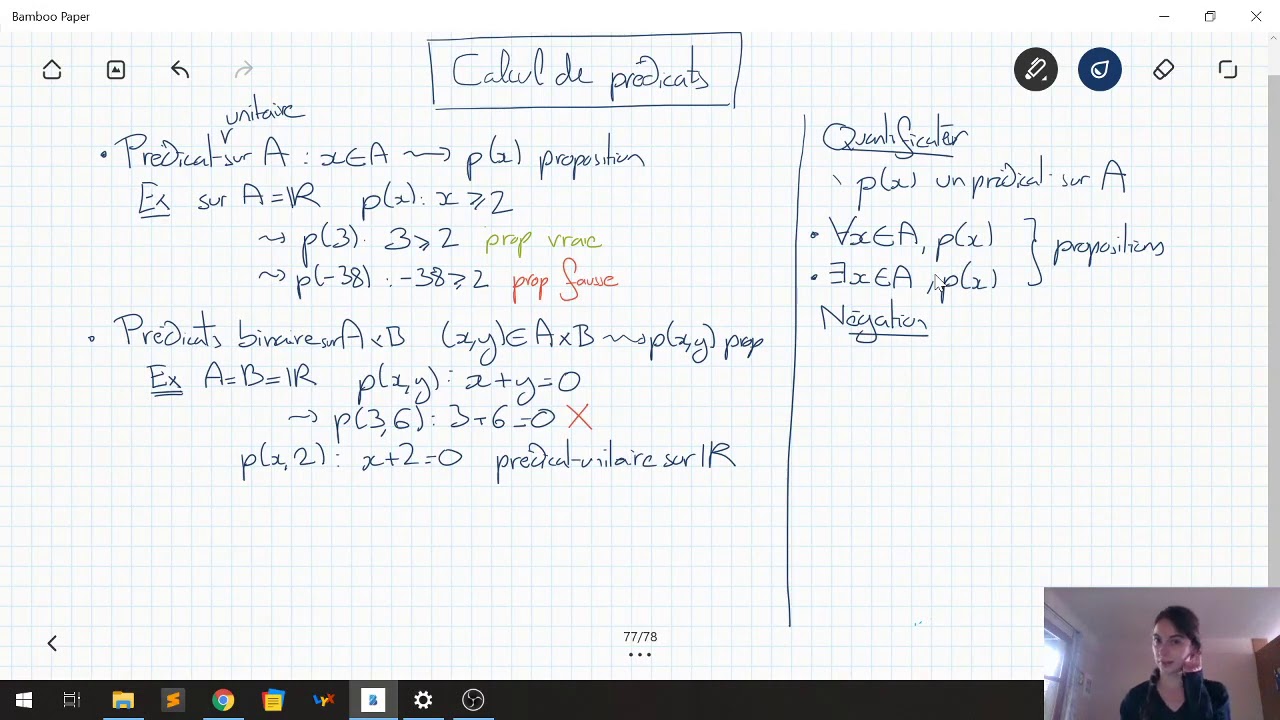 Bamboo Paper
Calcul de prédicats
unitaire
• Prédicat sur A : x∈A ⟿ p(x) proposition
Ex sur A = ℝ p(x) : x ⩾ 2
⤳ p(3) : 3 ⩾ 2 prop vraie
⤳ p(-38) : -38 ⩾ 2 prop fausse
• Prédicats binaire sur A×B (x,y)∈A×B ⟿ p(x,y) prop
Ex A=B=ℝ p(x,y) : x+y=0
⤳ p(3,6) : 3+6=0 X
p(x,2) : x+2=0 prédicat unitaire sur ℝ
Quantificateur
p(x) un prédicat sur A
• ∀x∈A, p(x)
} propositions
• ∃x∈A, p(x)
Négation
77/78